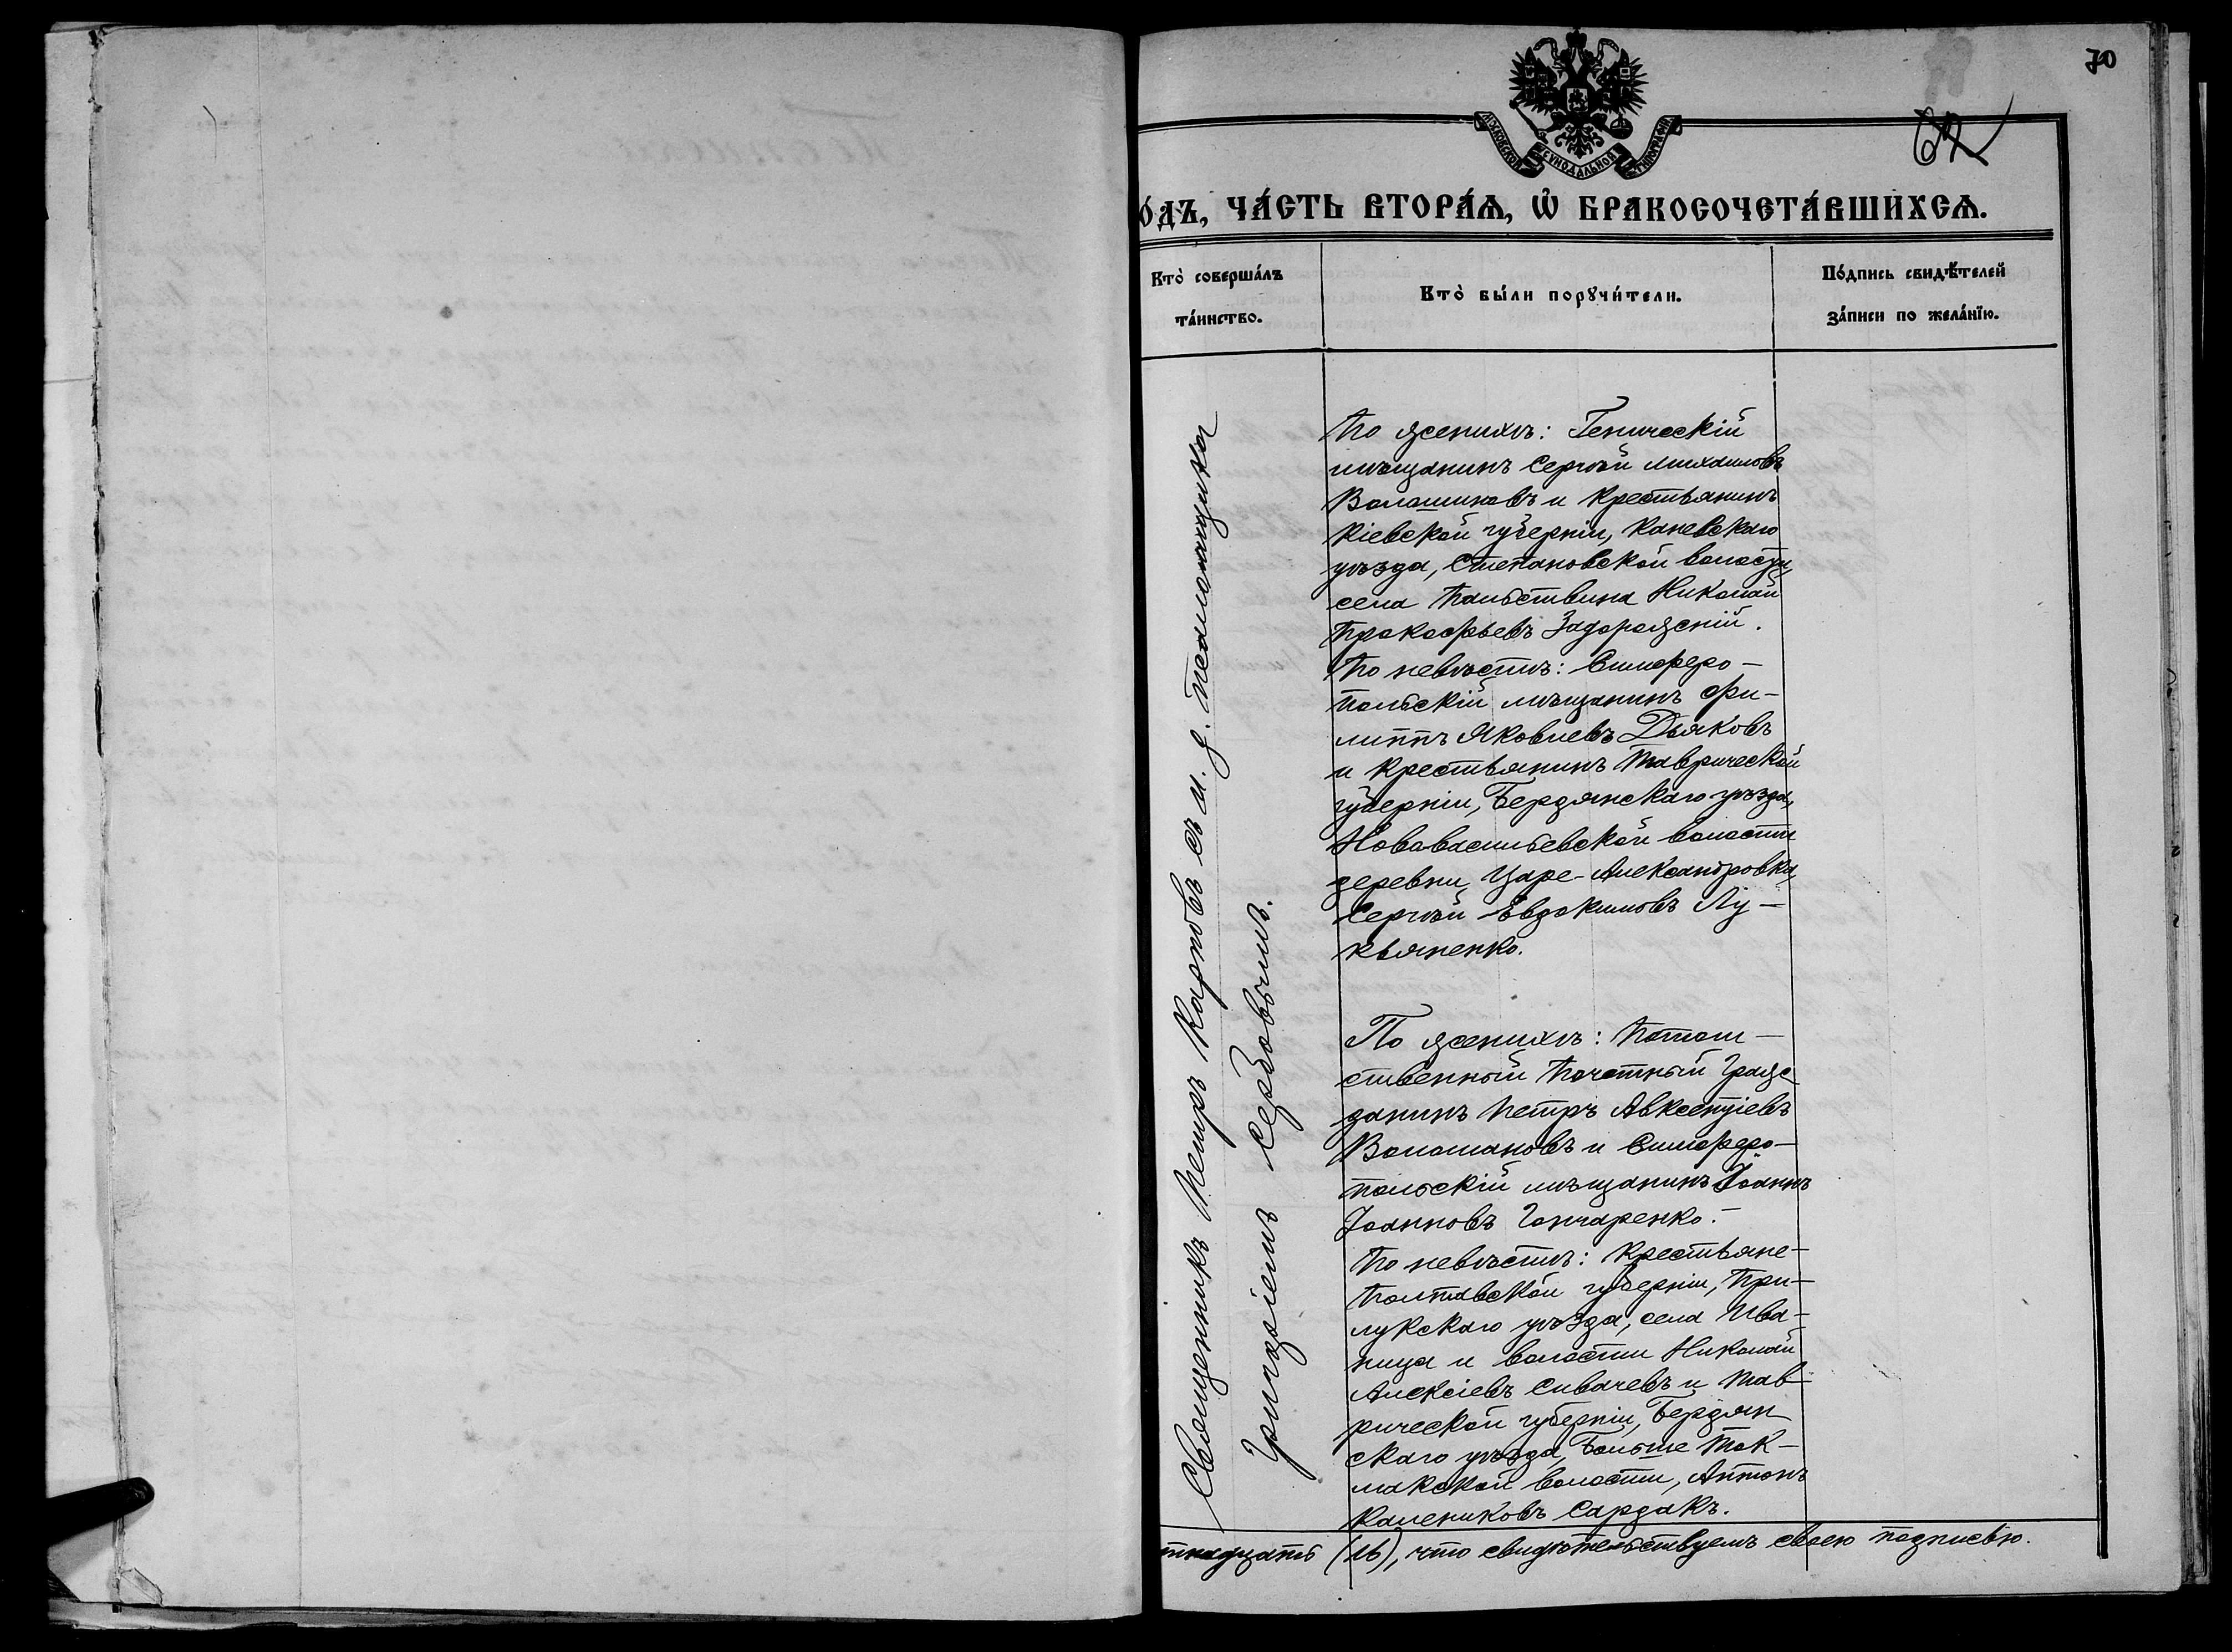 70
МОСКОВСКОЙ СѴНОДАЛЬНОЙ ТИПОГРАФІИ
о́дъ, ча́сть втора́ѧ, ѡ҆ бракосочета́вшихсѧ.
Кто̀ соверша́лъ
та́инство.
Кто̀ бы́ли порꙋчи́тели.
По́дпись свидѣ́телей
за́писи по жела́нїю.
Священникъ Петръ Карповъ съ и. д. псаломщика
Григоріемъ Сербовымъ.
По женихѣ: Геническій
мѣщанинъ Сергѣй Михаиловъ
Волошиновъ и крестьянинъ
Кіевской губерніи, Каневскаго
уѣзда, Степановской волости,
села Тальствина Николай
Прокофьевъ Задорожній.
По невѣстѣ: Симферо-
польскій мѣщанинъ Фи-
липпъ Яковлевъ Дьяковъ
и крестьянинъ Таврической
губерніи, Бердянскаго уѣзда,
Нововасильевской волости
деревни Царе-Александровки,
Сергѣй Евдокимовъ Лу-
кьяненко.
По женихѣ: Потом-
ственный Почетный Граж-
данинъ Петръ Авксентіевъ
Волошановъ и Симферо-
польскій мѣщанинъ Іоаннъ
Іоанновъ Гончаренко.-
По невѣстѣ: крестьяне-
Полтавской губерніи, При-
лукскаго уѣзда, села Ива-
ница и волости Николай
Алексіевъ Сивачевъ и Тав-
рической губерніи, Бердян
скаго уѣзда, Больше Ток-
макской волости, Антонъ
Калениковъ Сардакъ.
тнадцать (16), что свидѣтельствуемъ своею подписью.